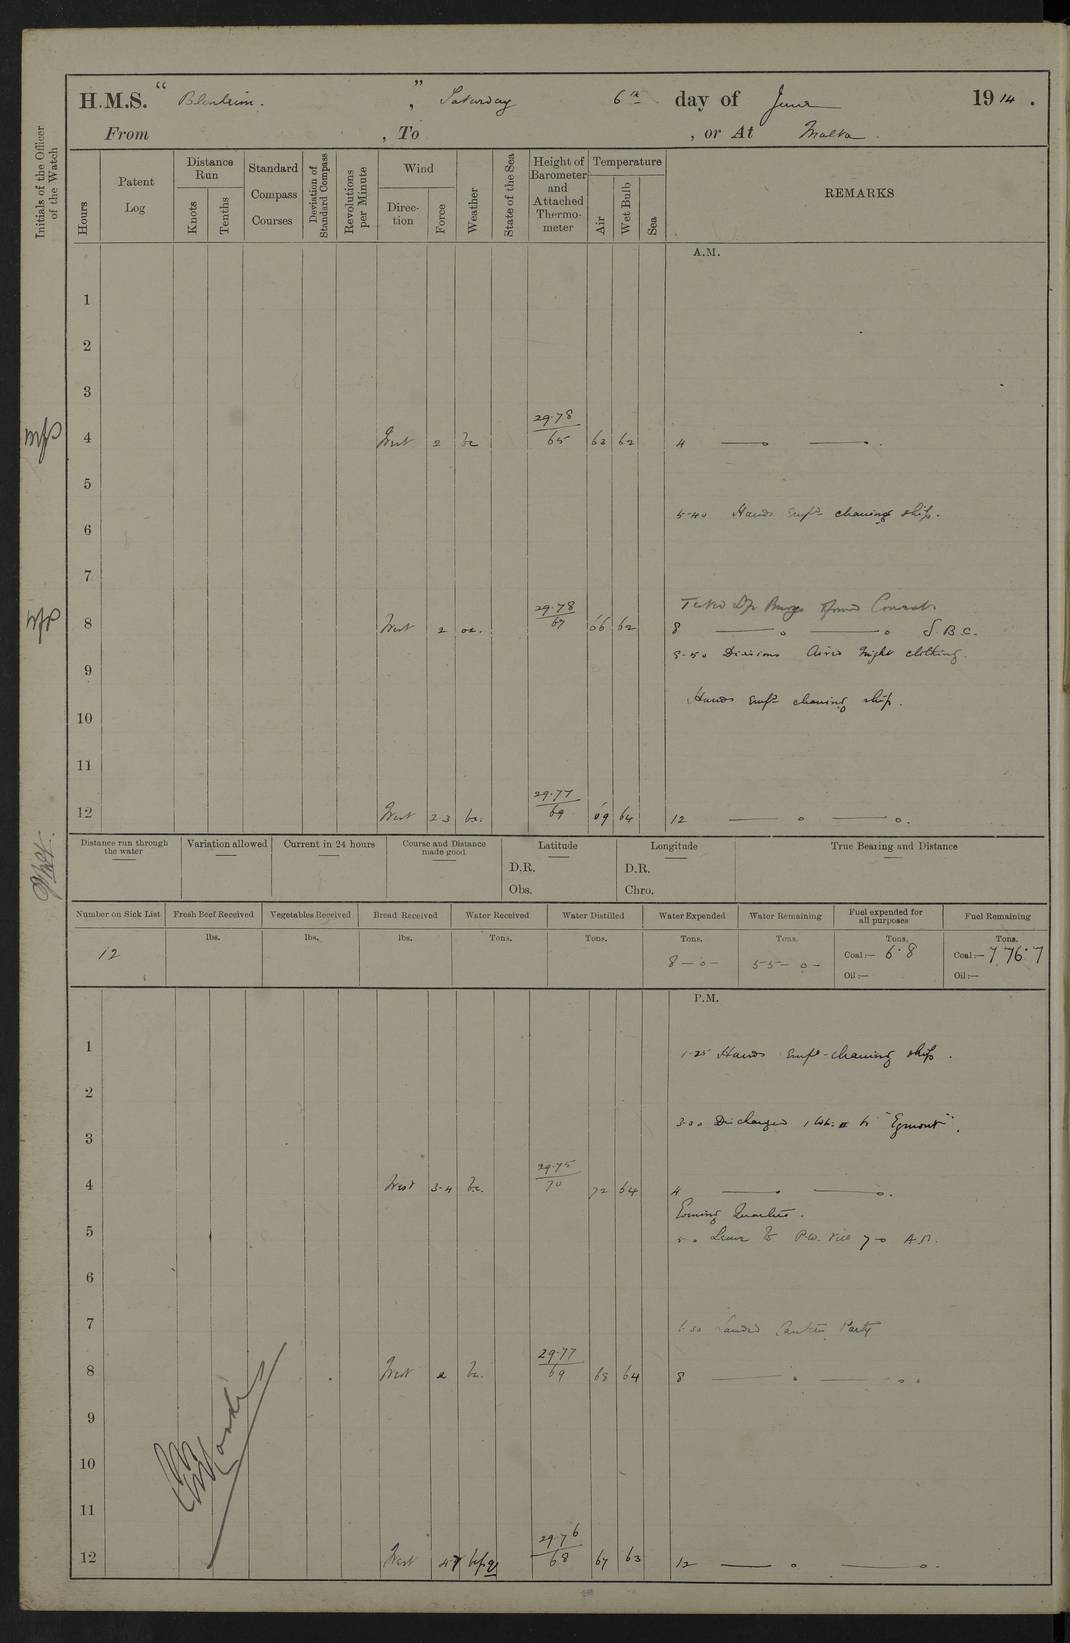 H.M.S. " Blenheim. " , Saturday 6th day of June 1914 .
From , To , or At Malta .
Initials of the Officer of the Watch
Hours
Patent Log
Distance Run
Knots
Tenths
Standard Compass Courses
Deviation of Standard Compass
Revolutions per Minute
Wind
Direction
Force
Weather
State of the Sea
Height of Barometer and Attached Thermometer
Temperature
Air
Wet Bulb
Sea
REMARKS
A.M.
1
2
3
4 West 2 bc 29.78 65 63 62 4
5
5-40 Hands empd cleaning ship.
6
7
8 West 2 29.78 67 66 62 8 S.B.C.
Divisions Aired night clothing.
9
Hands empd cleaning ship.
10
11
12 West 2.3 bc. 29.77 69 69 64 12
Distance run through the water
Variation allowed
Current in 24 hours
Course and Distance made good
Latitude
D.R.
Obs.
Longitude
D.R.
Chro.
True Bearing and Distance
Number on Sick List
Fresh Beef Received
Vegetables Received
Bread Received
Water Received
Water Distilled
Water Expended
Water Remaining
Fuel expended for all purposes
Fuel Remaining
12 lbs. lbs. lbs. Tons. Tons. Tons. 8-0- Tons. 55-0- Tons. Coal:- 6.8 Oil:- Tons. Coal:- 776.7 Oil:-
P.M.
1
1-25 Hands empd cleaning ship.
2
3.00 Discharged 1 to "Egmont".
3
4 West 3-4 bc. 29.75 70 72 64 4
Evening Quarters.
5
5.0 Leave to till 7-0 A.M.
6
7
Landed Canteen Party
8 West 2 bc. 29.77 69 68 64 8
9
10
11
12 West 29.76 68 67 63 12